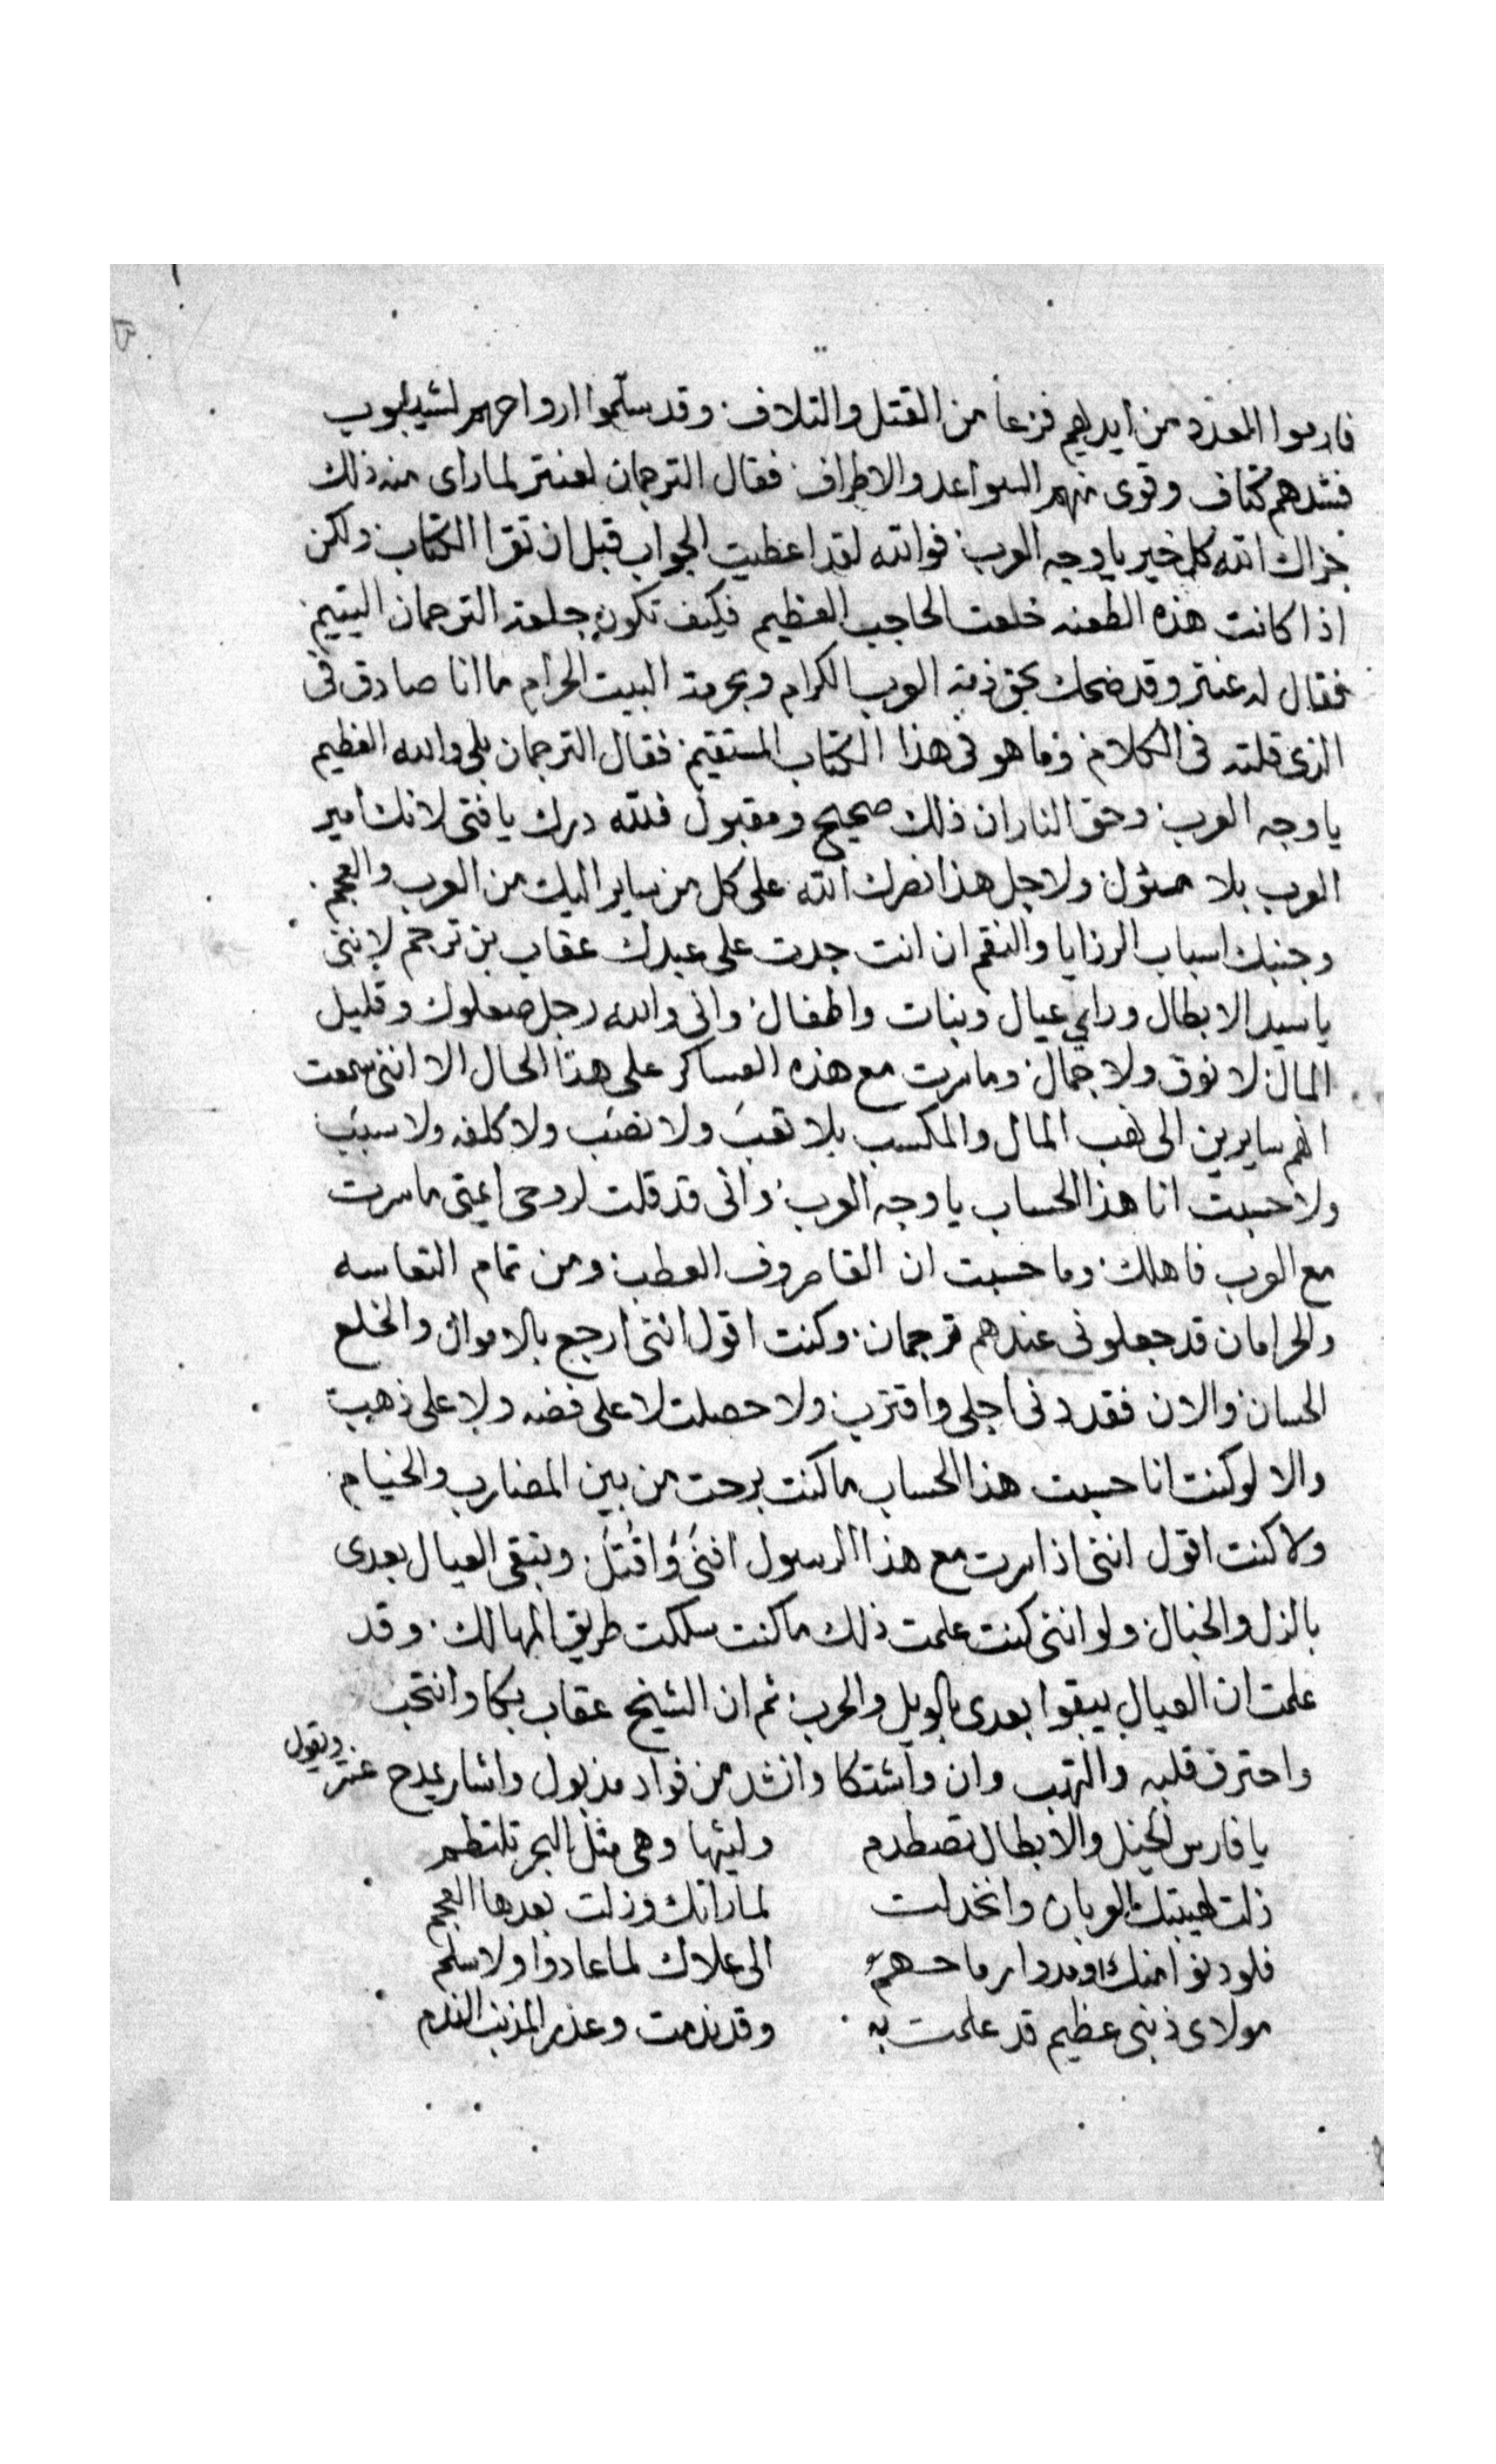 فارموا العدد من ايديهم فزعا من القتل والتلاف. وقد سلموا ارواحهم لشيبوب
فشدهم كتاف وقوى منهم السواعد والاطراف. فقال الترجمان لعنتر لما راى منه ذلك
جزاك الله كل خير يا وجه العرب. فوالله لقد اعطيت الجواب قبل ان تقرا الكتاب. ولكن
اذا كانت هذه الطعنه خلعت الحاجب العظيم فكيف تكون خلعة الترجمان اليتيم.
فقال له عنتر وقد ضحك بحق ذمة العرب الكرام وبحرمة البيت الحرام ما انا صادق فى
الذى قلته فى الكلام. وما هو فى هذا الكتاب المستقيم. فقال الترجمان بلى والله العظيم
يا وجه العرب. وحق النار ان ذلك صحيح ومقبول فلله درك يا فتى لانك امير
العرب بلا مسئول. ولاجل هذا نصرك الله على كل من ساير اليك من العرب والعجم.
وجنبك اسباب الرزايا والنقم ان انت جدت على عبدك عقاب بن ترجم لاننى
يا سيد الابطال وراي عيال وبنات واطفال. وانى والله رجل صعلوك وقليل
المال. لا نوق ولا جمال. وما سرت مع هذه العساكر على هذا الحال الا اننى سمعت
انهم سايرين الى نهب المال والمكسب بلا تعب ولا نصب ولا كلفه ولا سبب
ولا حسبت انا هذا الحساب يا وجه العرب. وانى قد قلت لروحى اعيتى ما سرت
مع العرب فاهلك. وما حسبت ان القا صروف العطب. ومن تمام التعاسه
والحرامان قد جعلونى عندهم ترجمان. وكنت اقول اننى ارجع بالاموال والخلع
الحسان. والان فقد دنى اجلى واقترب. ولا حصلت لا على فضه ولا على ذهب
والا لو كنت انا حسبت هذا الحساب ما كنت برحت من بين المضارب والخيام.
ولا كنت اقول اننى اذا سرت مع هذا الرسول افنى واقتل. وتبقى العيال بعدى
بالذل والخبال. ولو اننى كنت علمت ذلك ما كنت سلكت طريق المهالك. وقد
علمت ان العيال يبقوا بعدى بالويل والحرب. ثم ان الشيخ عقاب بكا وانتحب
واحترق قلبه والتهب وان واشتكا وانشد من فواد مذبول واشار يمدح عنتر ويقول
يا فارس الخيل والابطال تصطدم وليثها وهى مثل البحر تلتطم
ذلت لهيبتك العربان وانخذلت لما راتك وذلت بعدها العجم
فلو دنوا منك او مدوا رماحهم الى علاك لما عادوا ولا سلم
مولاى ذنبى عظيم قد علمت به. وقد ندمت وعذر المذنب الندم